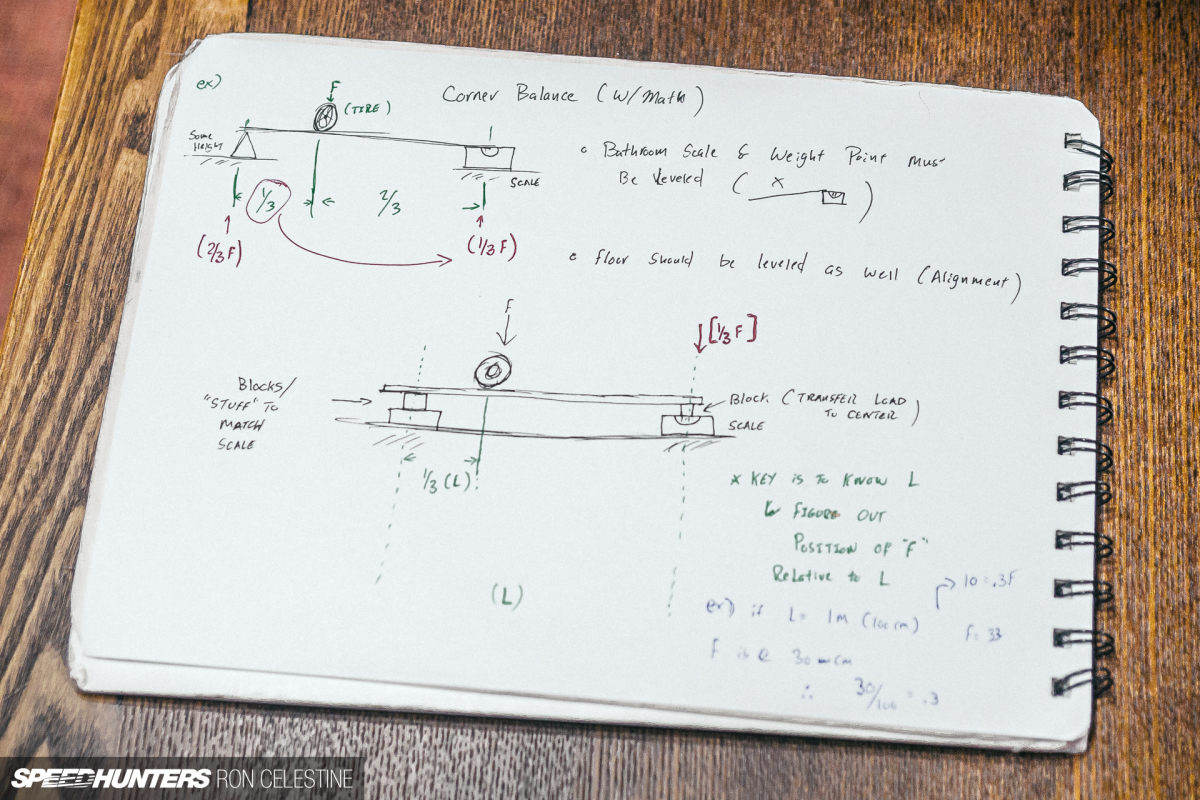 ex)
Corner Balance (w/ Maths)
F
(TIRE)
Some
Height
SCALE
1/3
2/3
(2/3 F)
(1/3 F)
• Bathroom Scale & Weight Point Must
Be leveled ( X )
• Floor should be leveled as well (Alignment)
F
[1/3 F]
Blocks/
"STUFF" TO
MATCH
SCALE
Block (TRANSFER LOAD
TO CENTER)
SCALE
1/3 (L)
(L)
* KEY IS TO KNOW L
↳ FIGURE OUT
POSITION OF "F"
Relative to L
ex) if L= 1m (100cm)
10 = .3F
F= 33
F is @ 30 cm
∴ 30/100 = .3
SPEEDHUNTERS RON CELESTINE